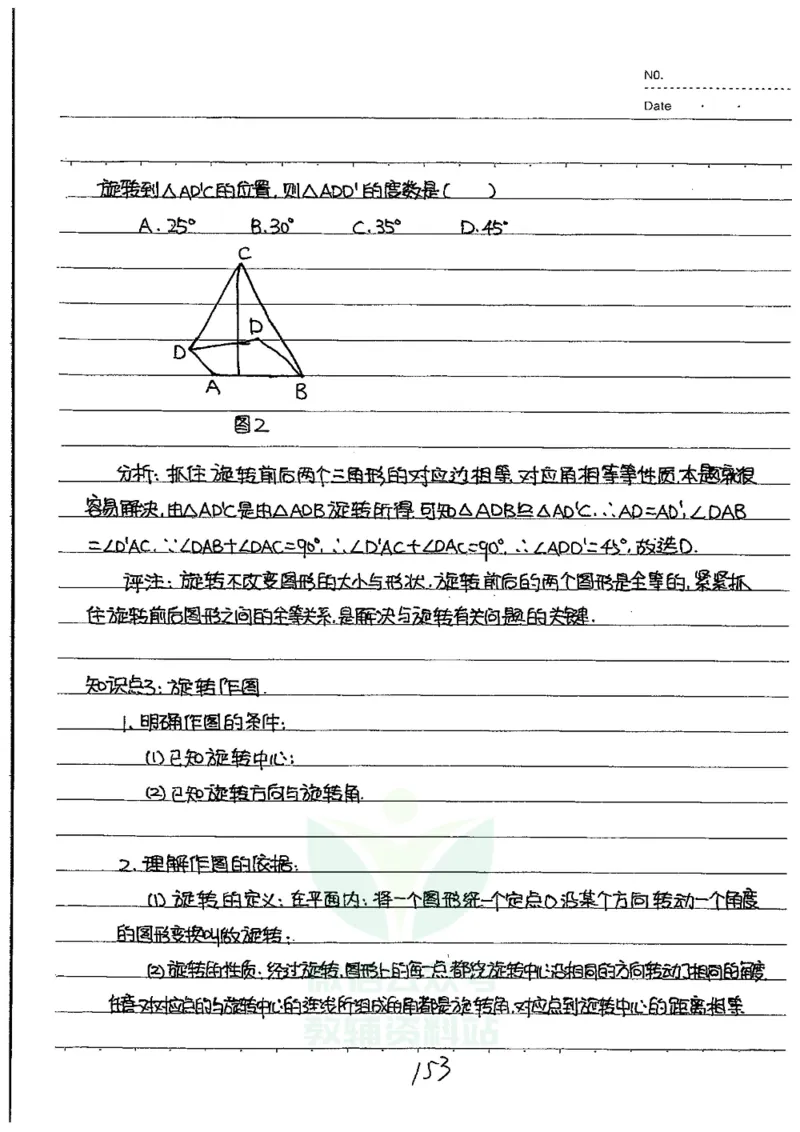 NO.
Date
旋转到△AD'C的位置,则△ADD'的度数是( )
A.25° B.30° C.35° D.45°
C
D
D
A
B
图2
分析:抓住旋转前后两个三角形的对应边相等、对应角相等等性质本题就很
容易解决,由△AD'C是由△ADB旋转所得可知△ADB≌△AD'C.∴AD=AD',∠DAB
=∠D'AC,∵∠DAB+∠DAC=90°,∴∠D'AC+∠DAC=90°,∴∠ADD'=45°,故选D.
评注:旋转不改变图形的大小与形状,旋转前后的两个图形是全等的,紧紧抓
住旋转前后图形之间的全等关系,是解决与旋转有关问题的关键.
知识点3:旋转作图.
1.明确作图的条件:
(1)已知旋转中心;
(2)已知旋转方向与旋转角.
2.理解作图的依据:
(1)旋转的定义:在平面内,将一个图形绕一个定点O沿某个方向转动一个角度
的图形变换叫做旋转;
(2)旋转的性质:经过旋转,图形上的每一点都绕旋转中心沿相同的方向转动了相同的角度,
任意一对对应点的与旋转中心的连线所组成的角都是旋转角,对应点到旋转中心的距离相等.
微信公众号
教辅资料站
153